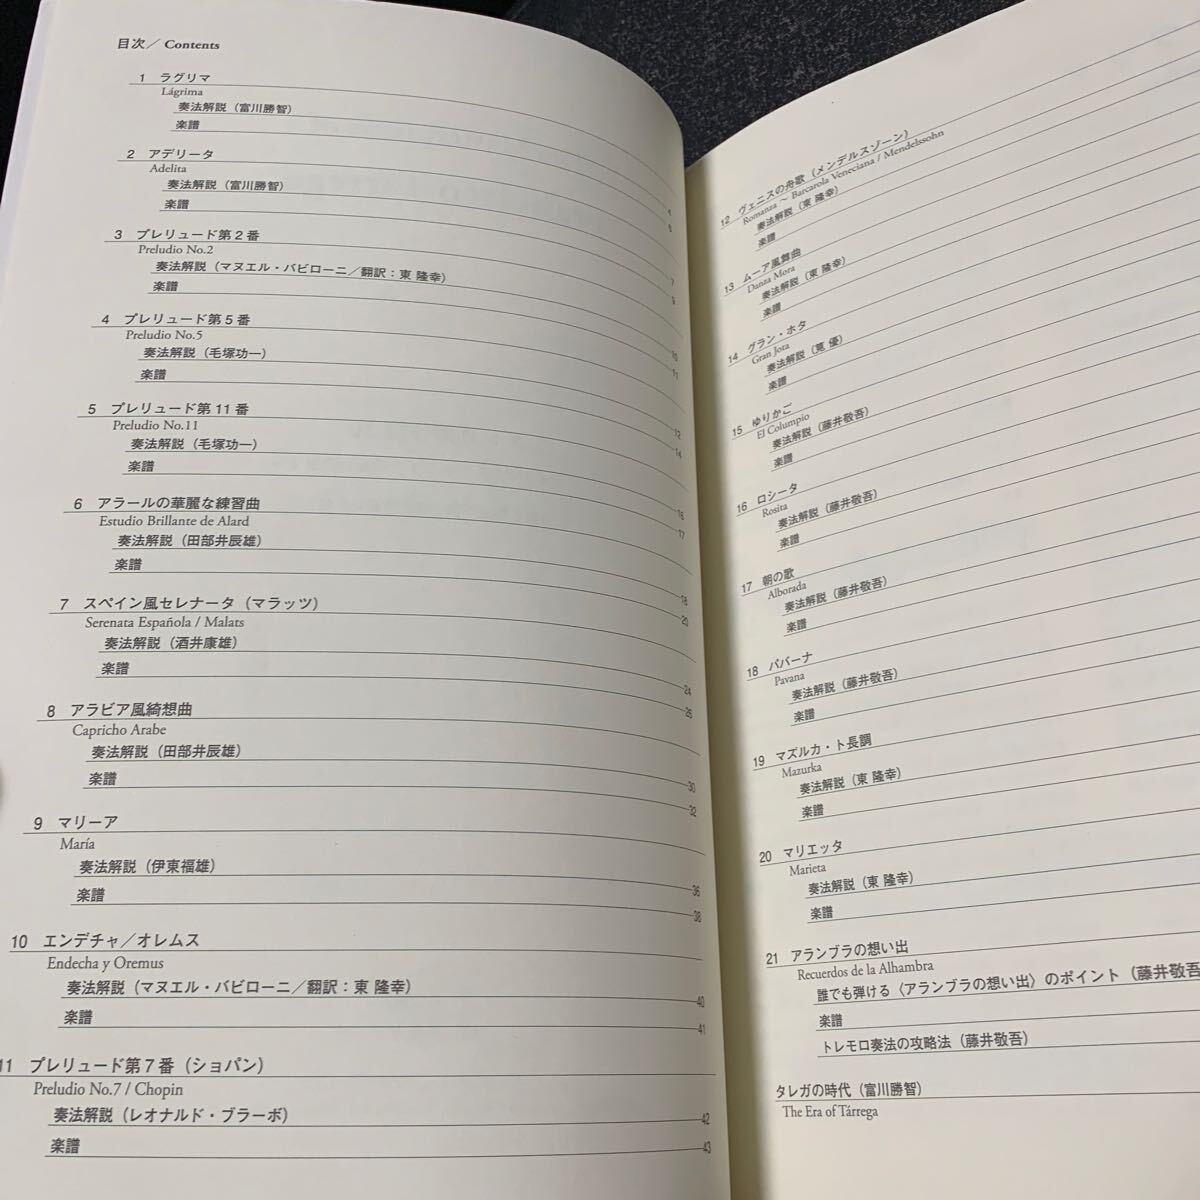 目次／Contents
1 ラグリマ
Lágrima
奏法解説（富川勝智） 4
楽譜 6
2 アデリータ
Adelita
奏法解説（富川勝智） 7
楽譜 9
3 プレリュード第2番
Preludio No.2
奏法解説（マヌエル・バビローニ／翻訳：東 隆幸） 10
楽譜 11
4 プレリュード第5番
Preludio No.5
奏法解説（毛塚功一） 12
楽譜 14
5 プレリュード第11番
Preludio No.11
奏法解説（毛塚功一） 16
楽譜 17
6 アラールの華麗な練習曲
Estudio Brillante de Alard
奏法解説（田部井辰雄） 18
楽譜 20
7 スペイン風セレナータ（マラッツ）
Serenata Española / Malats
奏法解説（酒井康雄） 24
楽譜 25
8 アラビア風綺想曲
Capricho Arabe
奏法解説（田部井辰雄） 30
楽譜 32
9 マリーア
María
奏法解説（伊東福雄） 36
楽譜 38
10 エンデチャ／オレムス
Endecha y Oremus
奏法解説（マヌエル・バビローニ／翻訳：東 隆幸） 40
楽譜 41
11 プレリュード第7番（ショパン）
Preludio No.7 / Chopin
奏法解説（レオナルド・ブラーボ） 42
楽譜 43
12 ヴェニスの舟歌（メンデルスゾーン）
Romanza ～ Barcarola Veneciana / Mendelssohn
奏法解説（東 隆幸）
楽譜
13 ムーア風舞曲
Danza Mora
奏法解説（東 隆幸）
楽譜
14 グラン・ホタ
Gran Jota
奏法解説（筧 優）
楽譜
15 ゆりかご
El Columpio
奏法解説（藤井敬吾）
楽譜
16 ロシータ
Rosita
奏法解説（藤井敬吾）
楽譜
17 朝の歌
Alborada
奏法解説（藤井敬吾）
楽譜
18 パバーナ
Pavana
奏法解説（藤井敬吾）
楽譜
19 マズルカ・ト長調
Mazurka
奏法解説（東 隆幸）
楽譜
20 マリエッタ
Marieta
奏法解説（東 隆幸）
楽譜
21 アランブラの想い出
Recuerdos de la Alhambra
誰でも弾ける〈アランブラの想い出〉のポイント（藤井敬吾
楽譜
トレモロ奏法の攻略法（藤井敬吾）
タレガの時代（富川勝智）
The Era of Tárrega